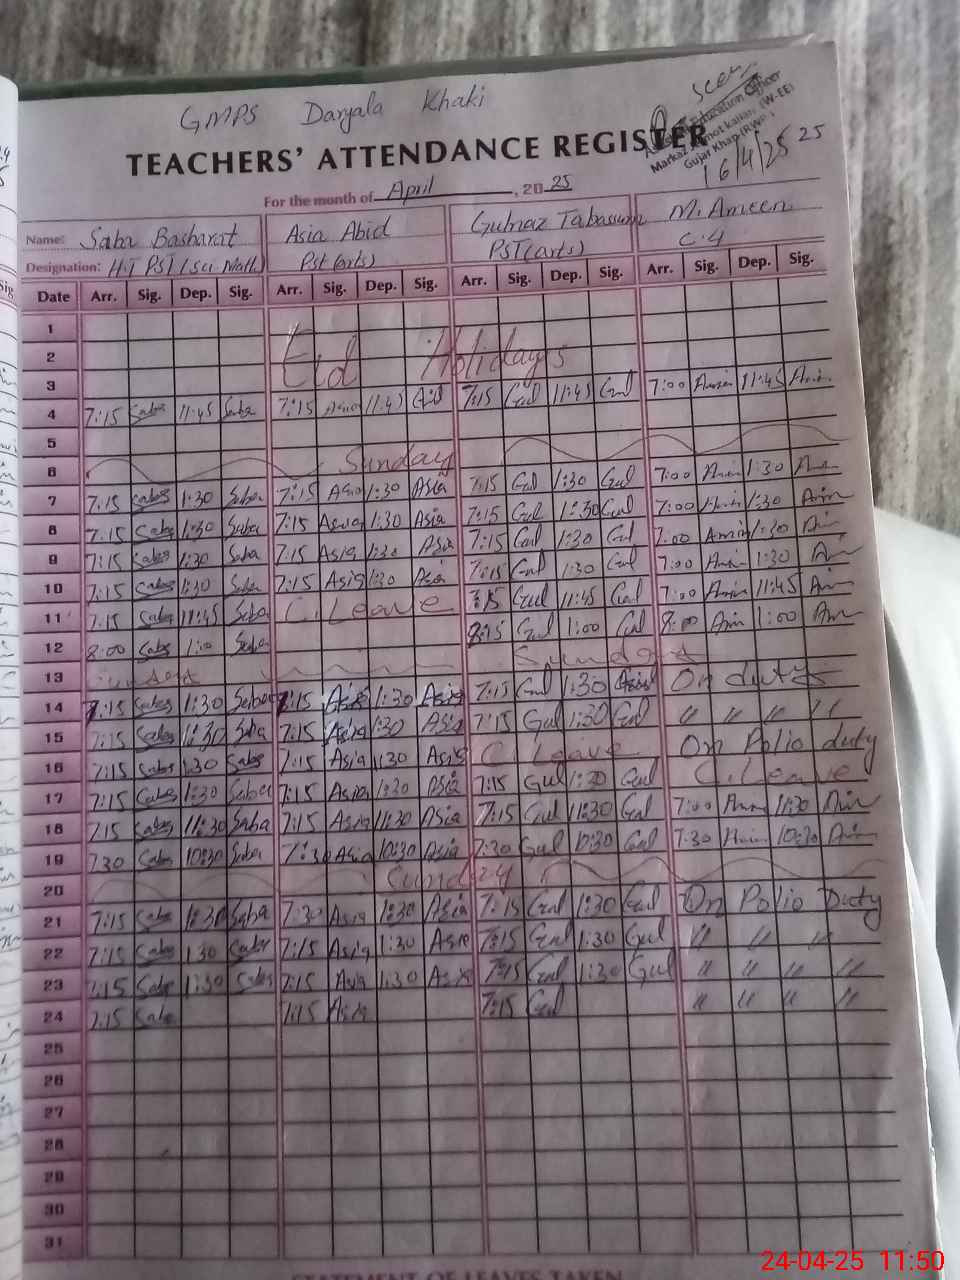 GMPS Daryala Khaki
seen
TEACHERS' ATTENDANCE REGISTER
Gujar Khan (RWP)
16/4/25 25
For the month of April, 2025
Name: Saba Basharat Asia Abid Gulnaz Tabassum M. Ameen
Designation: H.T PST (Sci Math) Pst (arts) PST (arts) C.4
Date Arr. Sig. Dep. Sig. Arr. Sig. Dep. Sig. Arr. Sig. Dep. Sig. Arr. Sig. Dep. Sig.
1
2 Eid Holidays
3
4 7:15 Saba 11:45 Saba 7:15 Asia 11:45 7:15 Gul 11:45 Gul 7:00 Amin 11:45 Amin
5
6 Sunday
7 7:15 Saba 1:30 Saba 7:15 Asia 1:30 Asia 7:15 Gul 1:30 Gul 7:00 Amin 1:30 Amin
8 7:15 Saba 1:30 Saba 7:15 Asia 1:30 Asia 7:15 Gul 1:30 Gul 7:00 Amin 1:30 Amin
9 7:15 Saba 1:30 Saba 7:15 Asia 1:30 Asia 7:15 Gul 1:30 Gul 7:00 Amin 1:30 Amin
10 7:15 Saba 1:30 Saba 7:15 Asia 1:30 Asia 7:15 Gul 1:30 Gul 7:00 Amin 1:30 Amin
11 7:15 Saba 11:45 Saba C. Leave 7:15 Gul 11:45 Gul 7:00 Amin 11:45 Amin
12 8:00 Saba 1:00 Saba 8:15 Gul 1:00 Gul 8:00 Aim 1:00 Aim
13 Sunday Sunday
14 7:15 Saba 1:30 Saba 7:15 Asia 1:30 Asia 7:15 Gul 1:30 On duty
15 7:15 Saba 1:30 Saba 7:15 Asia 1:30 Asia 7:15 Gul 1:30 Gul " " " "
16 7:15 Saba 1:30 Saba 7:15 Asia 1:30 Asia C. Leave On Polio duty
17 7:15 Saba 1:30 Saba 7:15 Asia 1:30 Asia 7:15 Gul 1:30 Gul C. Leave
18 7:15 Saba 11:30 Saba 7:15 Asia 11:30 Asia 7:15 Gul 11:30 Gul 7:00 Amin 11:30 Amin
19 7:30 Saba 10:30 Saba 7:30 Asia 10:30 Asia 7:30 Gul 10:30 Gul 7:30 Amin 10:30 Amin
20 Sunday
21 7:15 Saba 1:30 Saba 7:30 Asia 1:30 Asia 7:15 Gul 1:30 Gul On Polio Duty
22 7:15 Saba 1:30 Saba 7:15 Asia 1:30 Asia 7:15 Gul 1:30 Gul " " "
23 7:15 Saba 1:30 Saba 7:15 Asia 1:30 Asia 7:15 Gul 1:30 Gul " " " "
24 7:15 Saba 7:15 Asia 7:15 Gul " " " "
25
26
27
28
29
30
31
STATEMENT OF LEAVES TAKEN
24-04-25 11:50